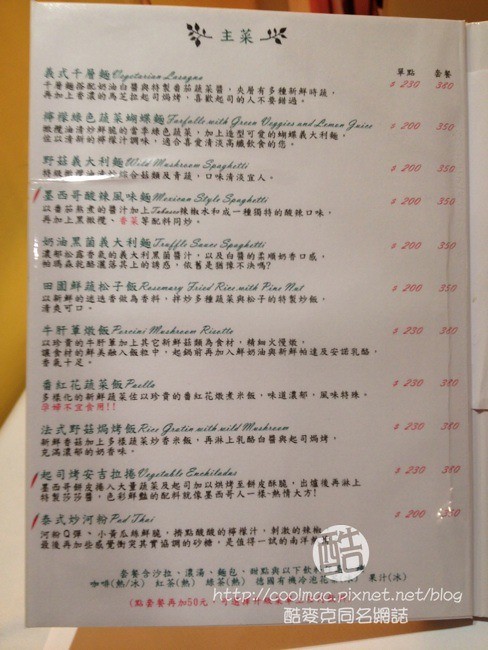 主菜
單點 套餐
義式千層麵 Vegetarian Lasagna $ 230 380
千層麵搭配奶油白醬與特製番茄蔬菜醬，夾層有多種新鮮時蔬，
再加上香濃的馬芝拉起司焗烤，喜歡起司的人不要錯過。
檸檬綠色蔬菜蝴蝶麵 Farfalle with Green Veggies and Lemon Juice $ 200 350
橄欖油清炒鮮脆的當季綠色蔬菜，加上造型可愛的蝴蝶義大利麵，
佐以清新的檸檬汁調味，適合喜愛清淡高纖飲食的您。
野菇義大利麵 Wild Mushroom Spaghetti $ 200 350
特級橄欖油清炒綜合菇類及青蔬，口味清淡宜人。
墨西哥酸辣風味麵 Mexican Style Spaghetti $ 200 350
以番茄熬煮的醬汁加上Tabasco辣椒水和成一種獨特的酸辣口味，
再加上黑橄欖、香菜等配料同炒。
奶油黑菌義大利麵 Truffle Sauce Spaghetti $ 200 350
濃郁松露香氣的義大利黑菌醬汁，以及白醬的柔順奶香口感，
帕瑪森乾酪灑落其上的誘惑，依舊是猶豫不決嗎?
田園鮮蔬松子飯 Rosemary Fried Rice with Pine Nut $ 200 350
以新鮮的迷迭香做為香料，拌炒多種蔬菜與松子的特製炒飯，
清爽可口。
牛肝蕈燉飯 Porcini Mushroom Risotto $ 230 380
以珍貴的牛肝蕈加上其它新鮮菇類為食材，精細火慢燉，
讓食材的鮮美融入飯粒中，起鍋前再加入鮮奶油與新鮮帕達及安諾乳酪，
香氣十足。
番紅花蔬菜飯 Paella $ 230 380
多樣化的新鮮蔬菜佐以珍貴的番紅花燉煮米飯，味道濃郁，風味特殊。
孕婦不宜食用!!
法式野菇焗烤飯 Rice Gratin with wild Mushroom $ 230 380
新鮮香菇加上多樣蔬菜炒香米飯，再淋上乳酪白醬與起司焗烤，
充滿濃郁的奶香味。
起司烤安吉拉捲 Vegetable Enchiladas $ 230 380
墨西哥餅皮捲入大量蔬菜及起司加以烘烤至餅皮酥脆，出爐後再淋上
特製莎莎醬，色彩鮮豔的配料就像墨西哥人一樣~熱情大方!
泰式炒河粉 Pad Thai $ 200 350
河粉Q彈、小黃瓜絲鮮脆，擠點酸酸的檸檬汁，刺激的辣椒
最後再加些感覺衝突其實協調的砂糖，是值得一試的南洋
套餐含沙拉、濃湯、麵包、甜點與以下飲料
咖啡(熱) 紅茶(熱) 綠茶(熱) 德國有機冷泡花 果汁(冰)
(點套餐再加50元，可
酷
http://coolmac.pixnet.net/blog
酷麥克同名網誌